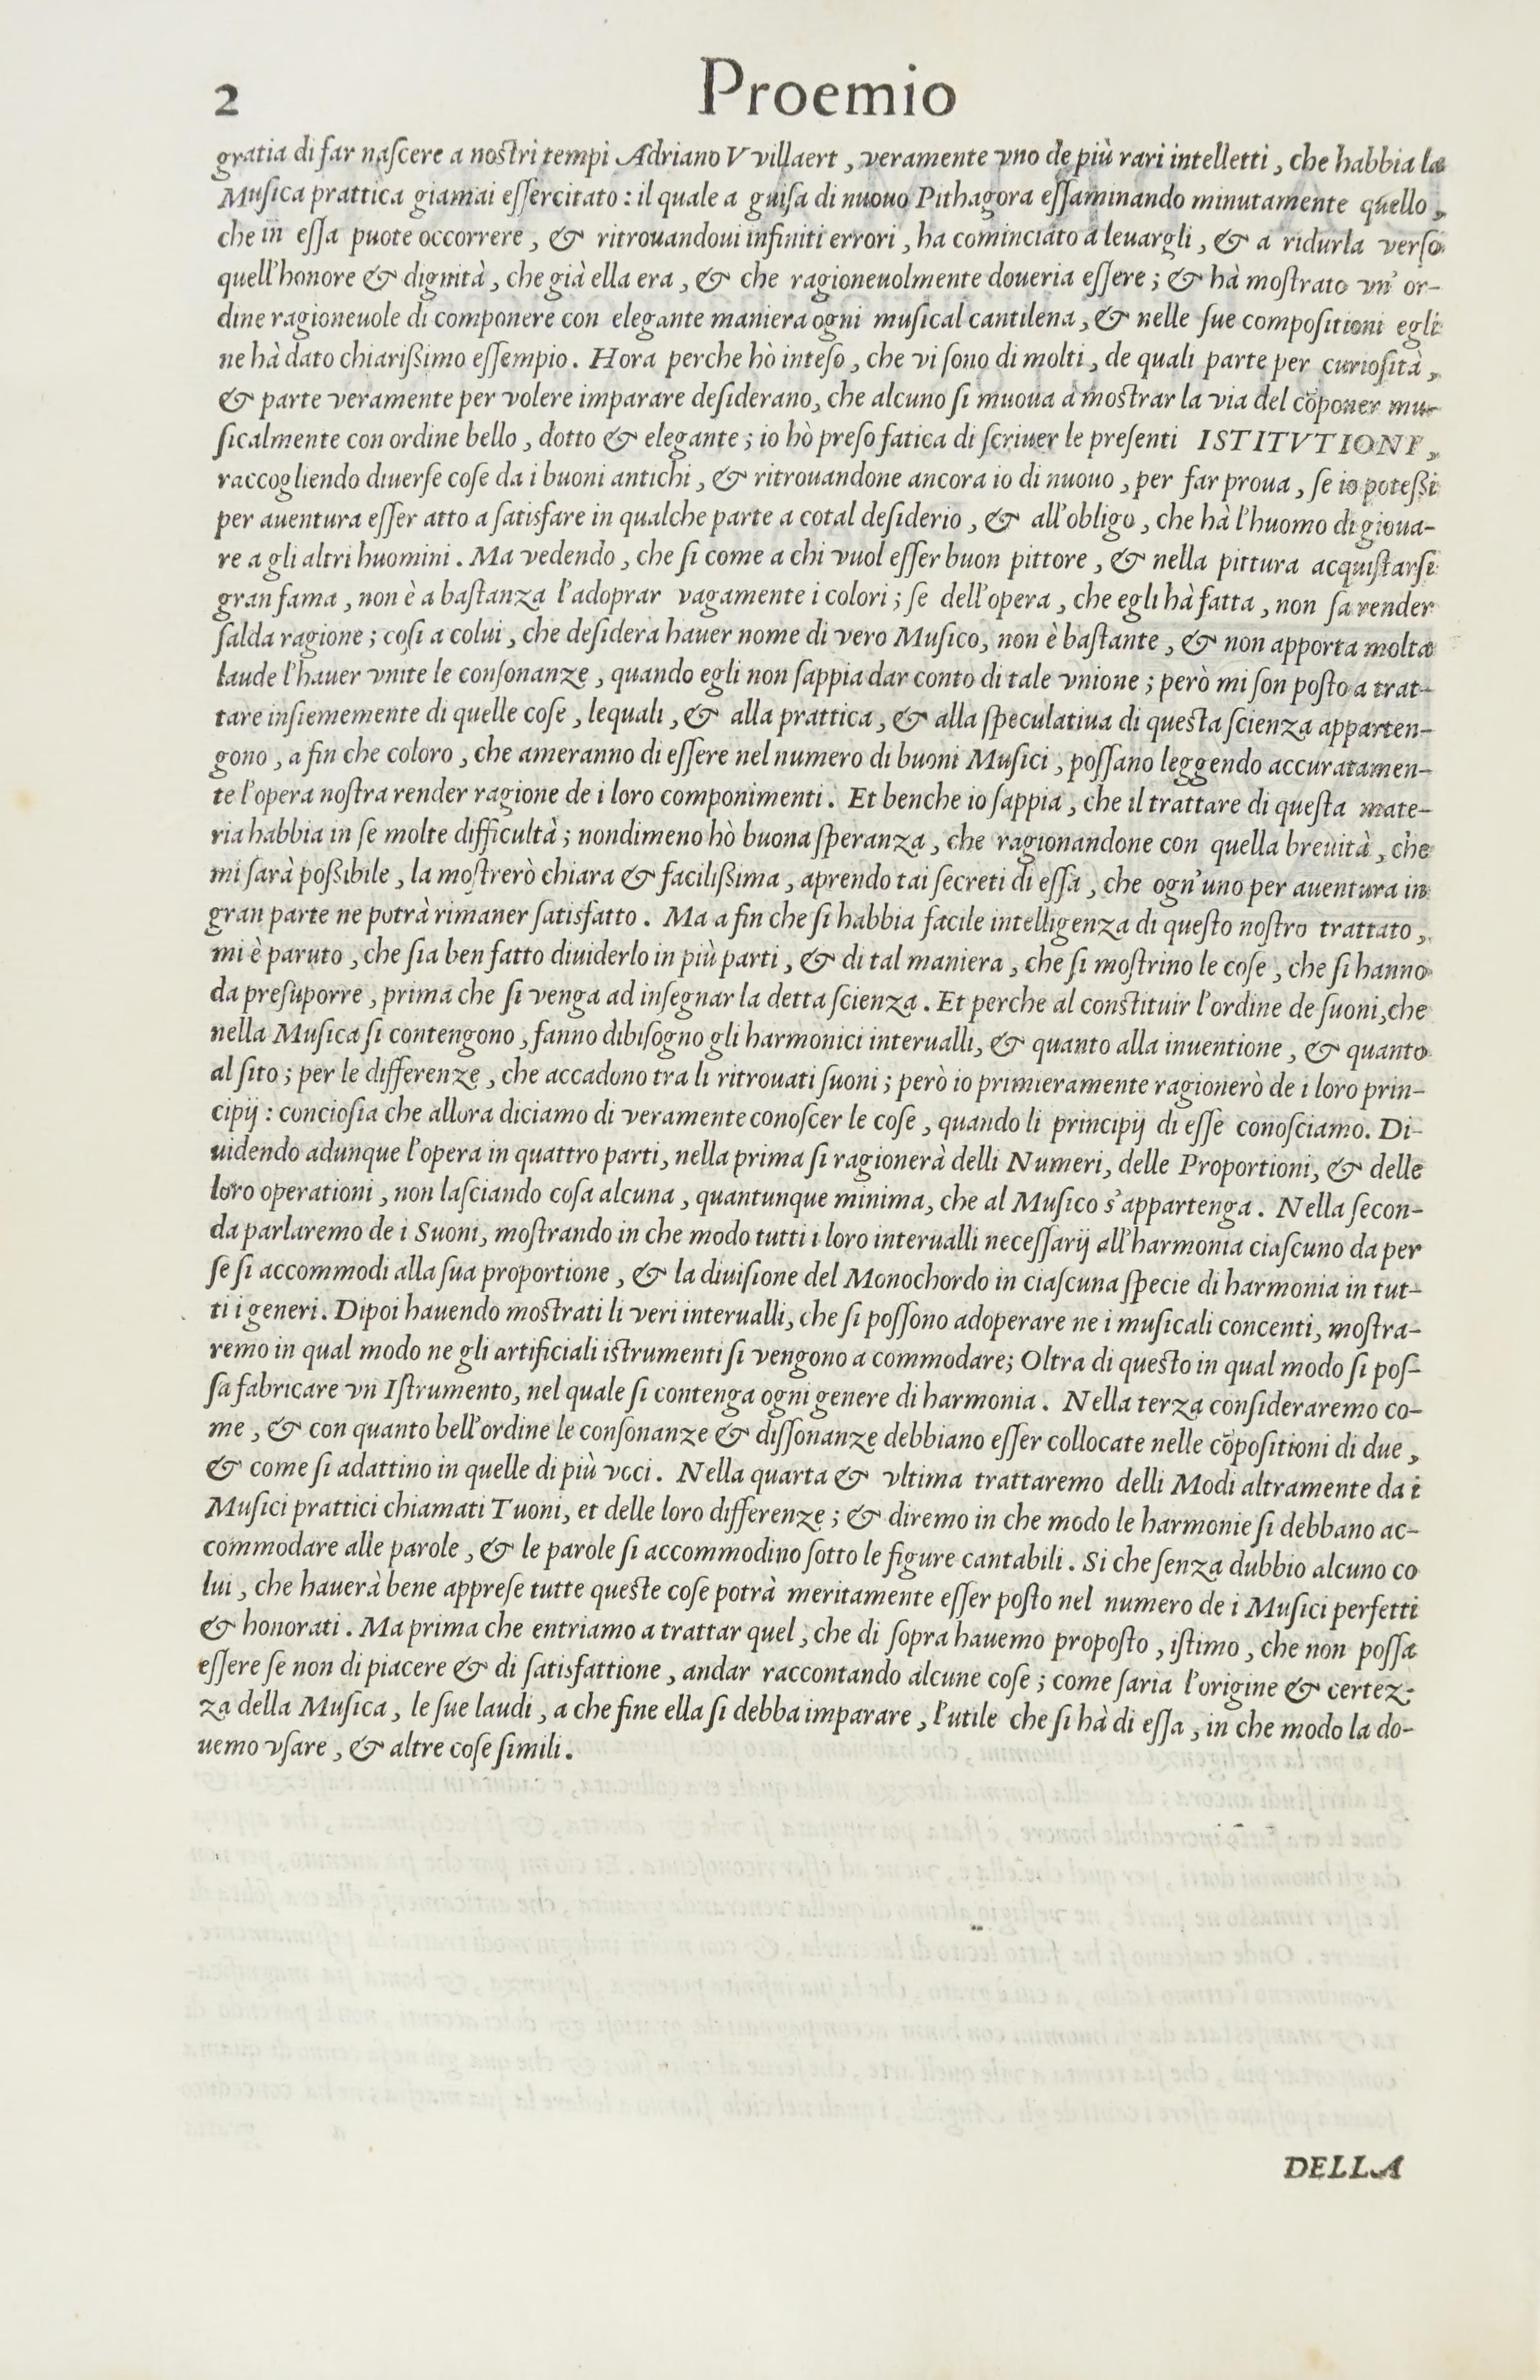 2 Proemio
gratia di far naſcere a noſtri tempi Adriano Vvillaert, veramente vno de più rari intelletti, che habbia la
Muſica prattica giamai eſſercitato: il quale a guiſa di nuouo Pithagora eſſaminando minutamente quello,
che in eſſa puote occorrere, & ritrouandoui infiniti errori, ha cominciato a leuargli, & a ridurla verſo
quell'honore & dignità, che già ella era, & che ragioneuolmente doueria eſſere; & hà moſtrato vn' or-
dine ragioneuole di componere con elegante maniera ogni muſical cantilena, & nelle ſue compoſitioni egli
ne hà dato chiariſsimo eſſempio. Hora perche hò inteſo, che vi ſono di molti, de quali parte per curioſità,
& parte veramente per volere imparare deſiderano, che alcuno ſi muoua a moſtrar la via del cõponer mu-
ſicalmente con ordine bello, dotto & elegante; io hò preſo fatica di ſcriuer le preſenti ISTITVTIONI,
raccogliendo diuerſe coſe da i buoni antichi, & ritrouandone ancora io di nuouo, per far proua, ſe io poteſsi
per auentura eſſer atto a ſatisfare in qualche parte a cotal deſiderio, & all'obligo, che hà l'huomo di gioua-
re a gli altri huomini. Ma vedendo, che ſi come a chi vuol eſſer buon pittore, & nella pittura acquiſtarſi
gran fama, non è a baſtanza l'adoprar vagamente i colori; ſe dell'opera, che egli hà fatta, non ſa render
ſalda ragione; coſi a colui, che deſidera hauer nome di vero Muſico, non è baſtante, & non apporta molta
laude l'hauer vnite le conſonanze, quando egli non ſappia dar conto di tale vnione; però mi ſon poſto a trat-
tare inſiememente di quelle coſe, lequali, & alla prattica, & alla ſpeculatiua di queſta ſcienza apparten-
gono, a fin che coloro, che ameranno di eſſere nel numero di buoni Muſici, poſſano leggendo accuratamen-
te l'opera noſtra render ragione de i loro componimenti. Et benche io ſappia, che il trattare di queſta mate-
ria habbia in ſe molte difficultà; nondimeno hò buona ſperanza, che ragionandone con quella breuità, che
mi ſarà poſsibile, la moſtrerò chiara & faciliſsima, aprendo tai ſecreti di eſſa, che ogn'uno per auentura in
gran parte ne potrà rimaner ſatisfatto. Ma a fin che ſi habbia facile intelligenza di queſto noſtro trattato,
mi è paruto, che ſia ben fatto diuiderlo in più parti, & di tal maniera, che ſi moſtrino le coſe, che ſi hanno
da preſuporre, prima che ſi venga ad inſegnar la detta ſcienza. Et perche al conſtituir l'ordine de ſuoni, che
nella Muſica ſi contengono, fanno dibiſogno gli harmonici interualli, & quanto alla inuentione, & quanto
al ſito; per le differenze, che accadono tra li ritrouati ſuoni; però io primieramente ragionerò de i loro prin-
cipij: concioſia che allora diciamo di veramente conoſcer le coſe, quando li principij di eſſe conoſciamo. Di-
uidendo adunque l'opera in quattro parti, nella prima ſi ragionerà delli Numeri, delle Proportioni, & delle
loro operationi, non laſciando coſa alcuna, quantunque minima, che al Muſico s'appartenga. Nella ſecon-
da parlaremo de i Suoni, moſtrando in che modo tutti i loro interualli neceſſarij all'harmonia ciaſcuno da per
ſe ſi accommodi alla ſua proportione, & la diuiſione del Monochordo in ciaſcuna ſpecie di harmonia in tut-
ti i generi. Dipoi hauendo moſtrati li veri interualli, che ſi poſſono adoperare ne i muſicali concenti, moſtra-
remo in qual modo ne gli artificiali iſtrumenti ſi vengono a commodare; Oltra di queſto in qual modo ſi poſ-
ſa fabricare vn Iſtrumento, nel quale ſi contenga ogni genere di harmonia. Nella terza conſideraremo co-
me, & con quanto bell'ordine le conſonanze & diſſonanze debbiano eſſer collocate nelle cõpoſitioni di due,
& come ſi adattino in quelle di più voci. Nella quarta & vltima trattaremo delli Modi altramente da i
Muſici prattici chiamati Tuoni, et delle loro differenze; & diremo in che modo le harmonie ſi debbano ac-
commodare alle parole, & le parole ſi accommodino ſotto le figure cantabili. Si che ſenza dubbio alcuno co
lui, che hauerà bene appreſe tutte queſte coſe potrà meritamente eſſer poſto nel numero de i Muſici perfetti
& honorati. Ma prima che entriamo a trattar quel, che di ſopra hauemo propoſto, iſtimo, che non poſſa
eſſere ſe non di piacere & di ſatisfattione, andar raccontando alcune coſe; come ſaria l'origine & certez-
za della Muſica, le ſue laudi, a che fine ella ſi debba imparare, l'utile che ſi hà di eſſa, in che modo la do-
uemo vſare, & altre coſe ſimili.
DELLA